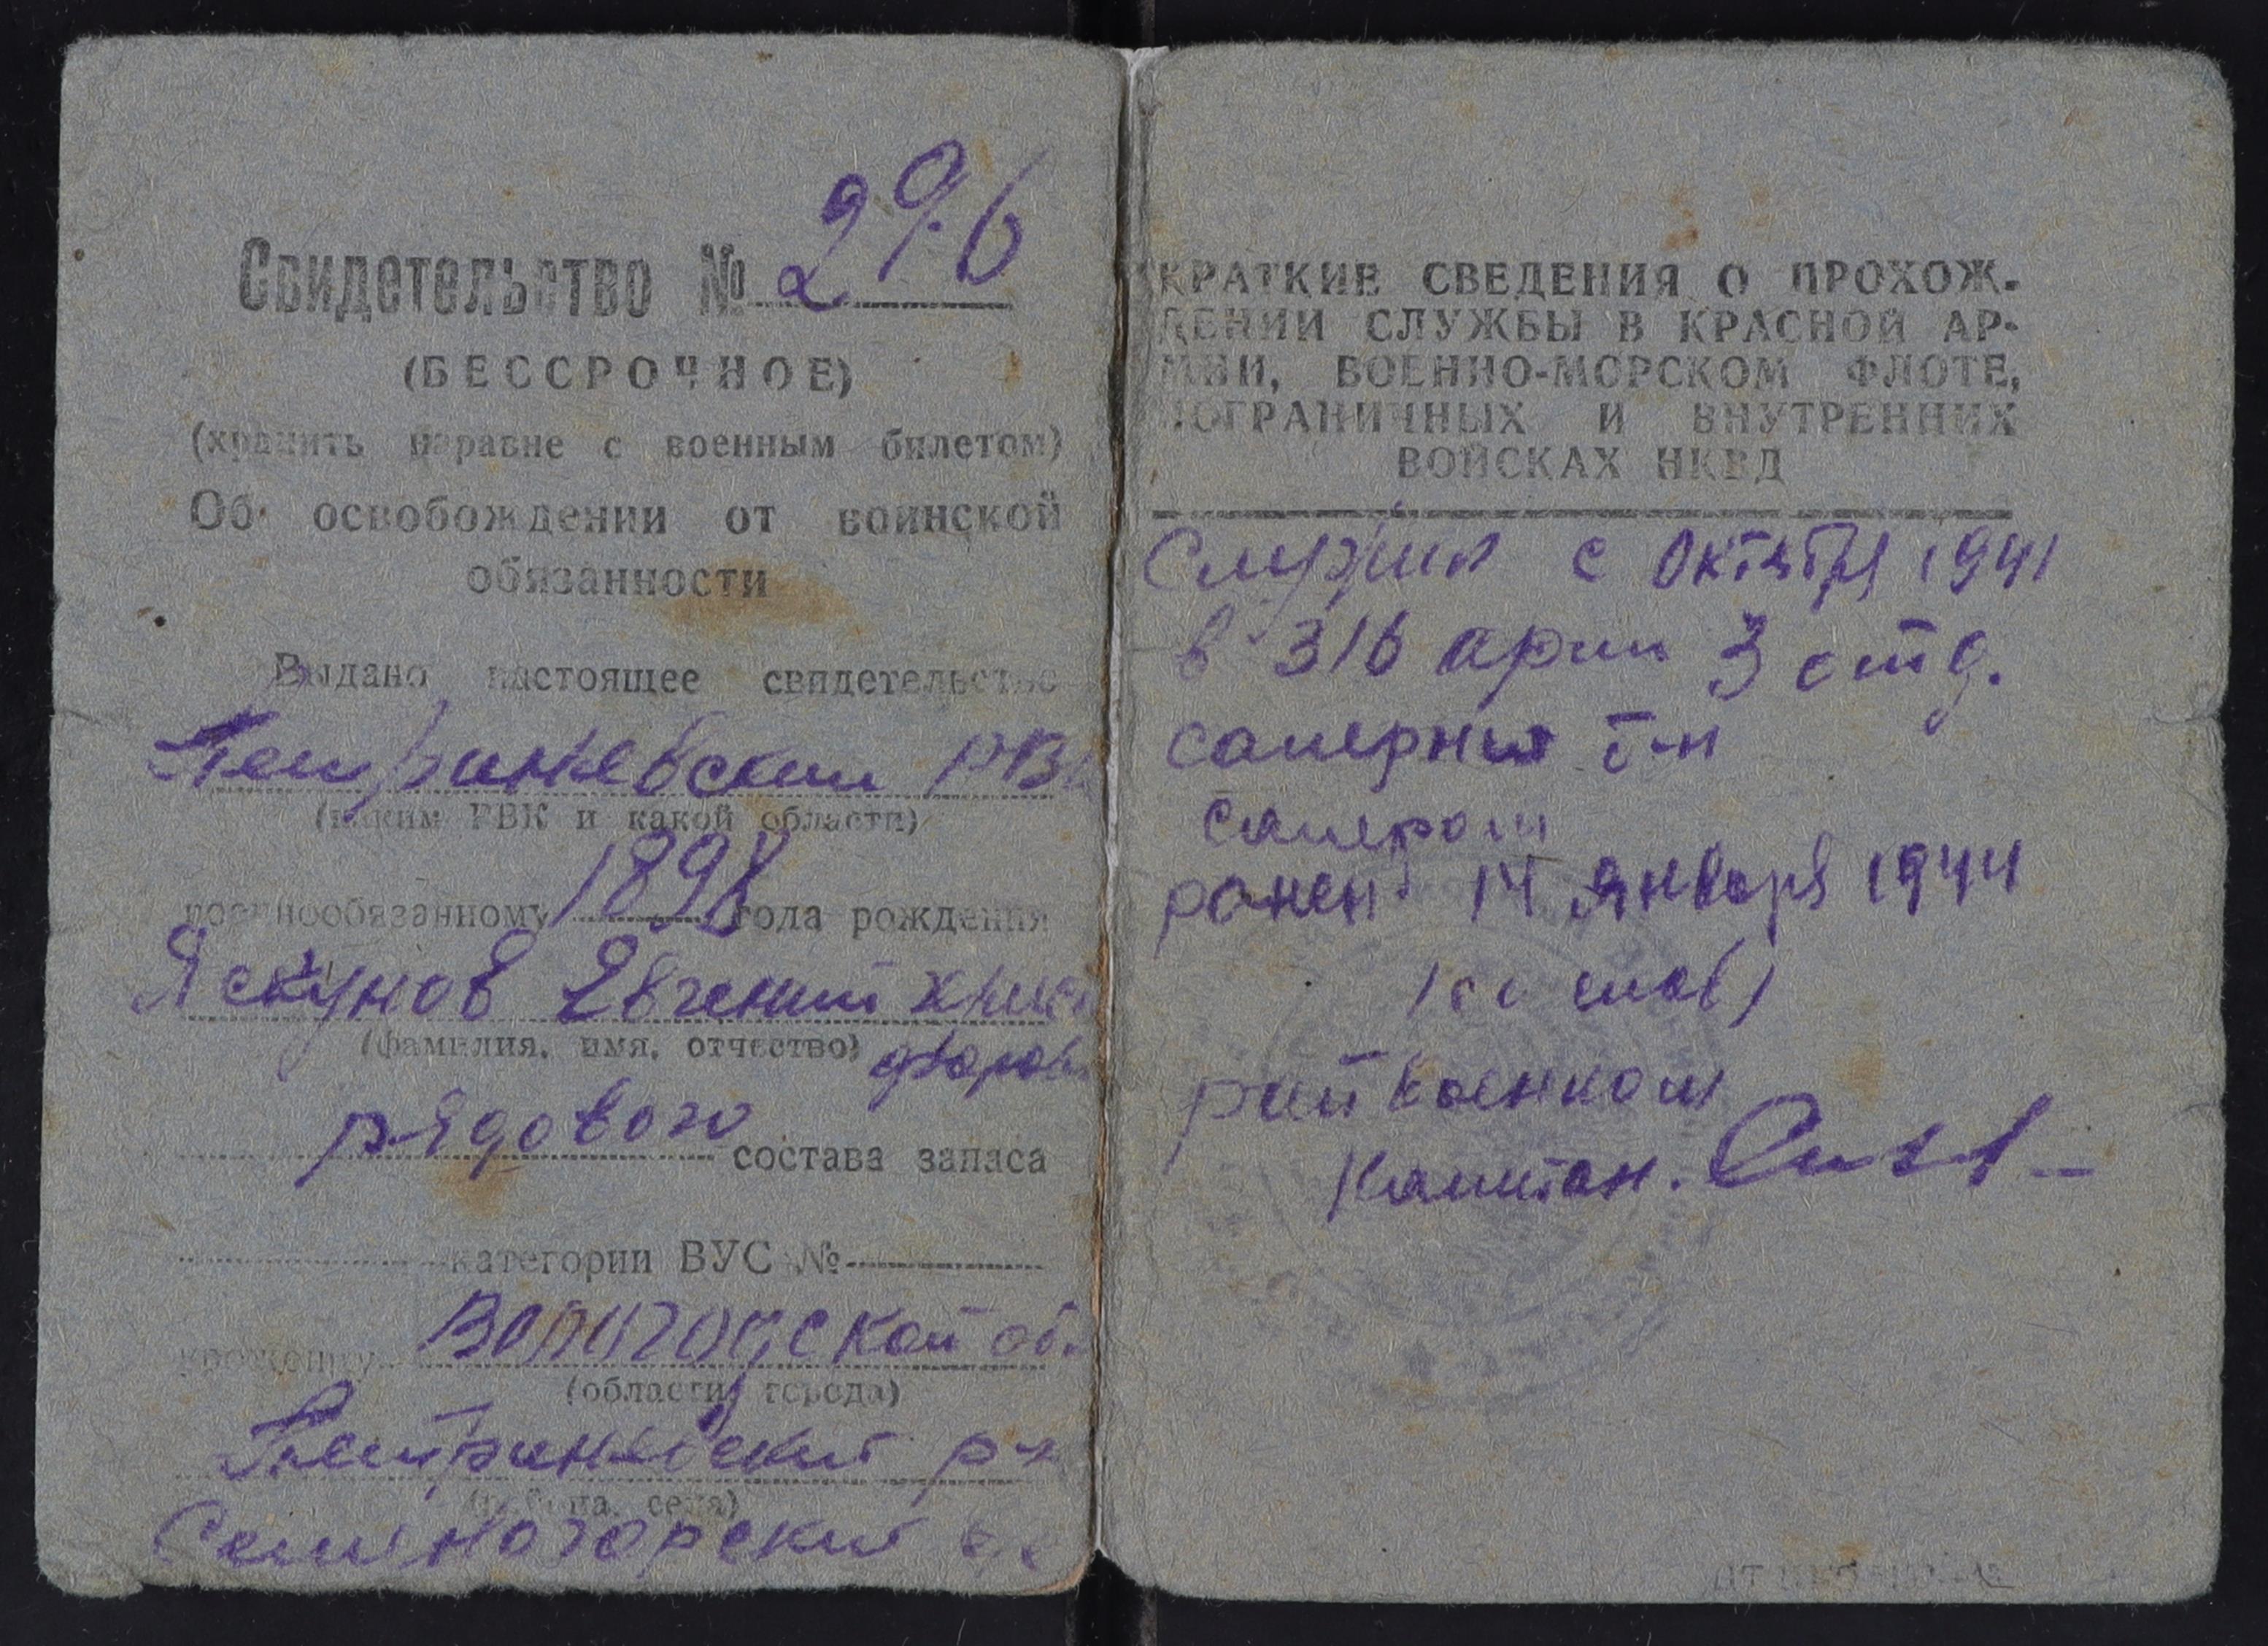 Свидетельство № 296
(БЕССРОЧНОЕ)
(хранить наравне с военным билетом)
Об освобождении от воинской
обязанности
Выдано настоящее свидетельство
Петриневским РВК
(каким РВК и какой области)
военнообязанному 1898 года рождения
Яскунов Евгений Христо
(фамилия, имя, отчество)
форов
рядового состава запаса
категории ВУС №
уроженцу Вологодской об.
(области, города)
Петриневский р-н
(района, села)
Семеногорский
КРАТКИЕ СВЕДЕНИЯ О ПРОХОЖ-
ДЕНИИ СЛУЖБЫ В КРАСНОЙ АР-
МИИ, ВОЕННО-МОРСКОМ ФЛОТЕ,
ПОГРАНИЧНЫХ И ВНУТРЕННИХ
ВОЙСКАХ НКВД
Служил с октября 1941
в 316 3 отд.
саперный б-н
сапером
ранен 14 января 1944
райвоенком
капитан.